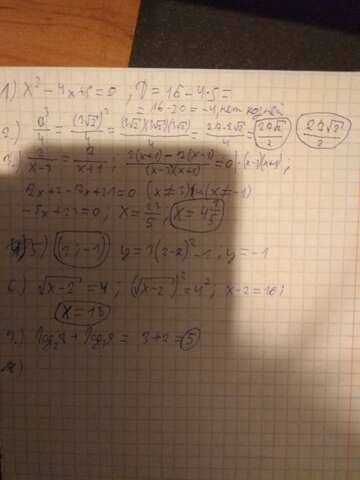 1) x² - 4x + 5 = 0 , D = 16 - 4·5 =
= 16 - 20 = -4, нет корней
2.) a³/4 = (3√2)³/4 = (3√2)(3√2)(3√2)/4 = 27·2√2/4 = 27√2/2 27√2/2
3.) 2/(x-3) = 7/(x+1) ; (2(x+1) - 7(x-3))/((x-3)(x+1)) = 0 |·(x-3)(x+1) ;
2x+2-7x+21=0 (x≠3) (x≠-1)
-5x+23=0 ; x = 23/5 , x = 4 3/5
5) y = 3(x-2)² - 1 ; y = -1
6) √x-2 = 4 ; (√x-2)² = 4² ; x-2 = 16 ;
x = 18
7.) log₂8 + log₃9 = 3+2 = 5